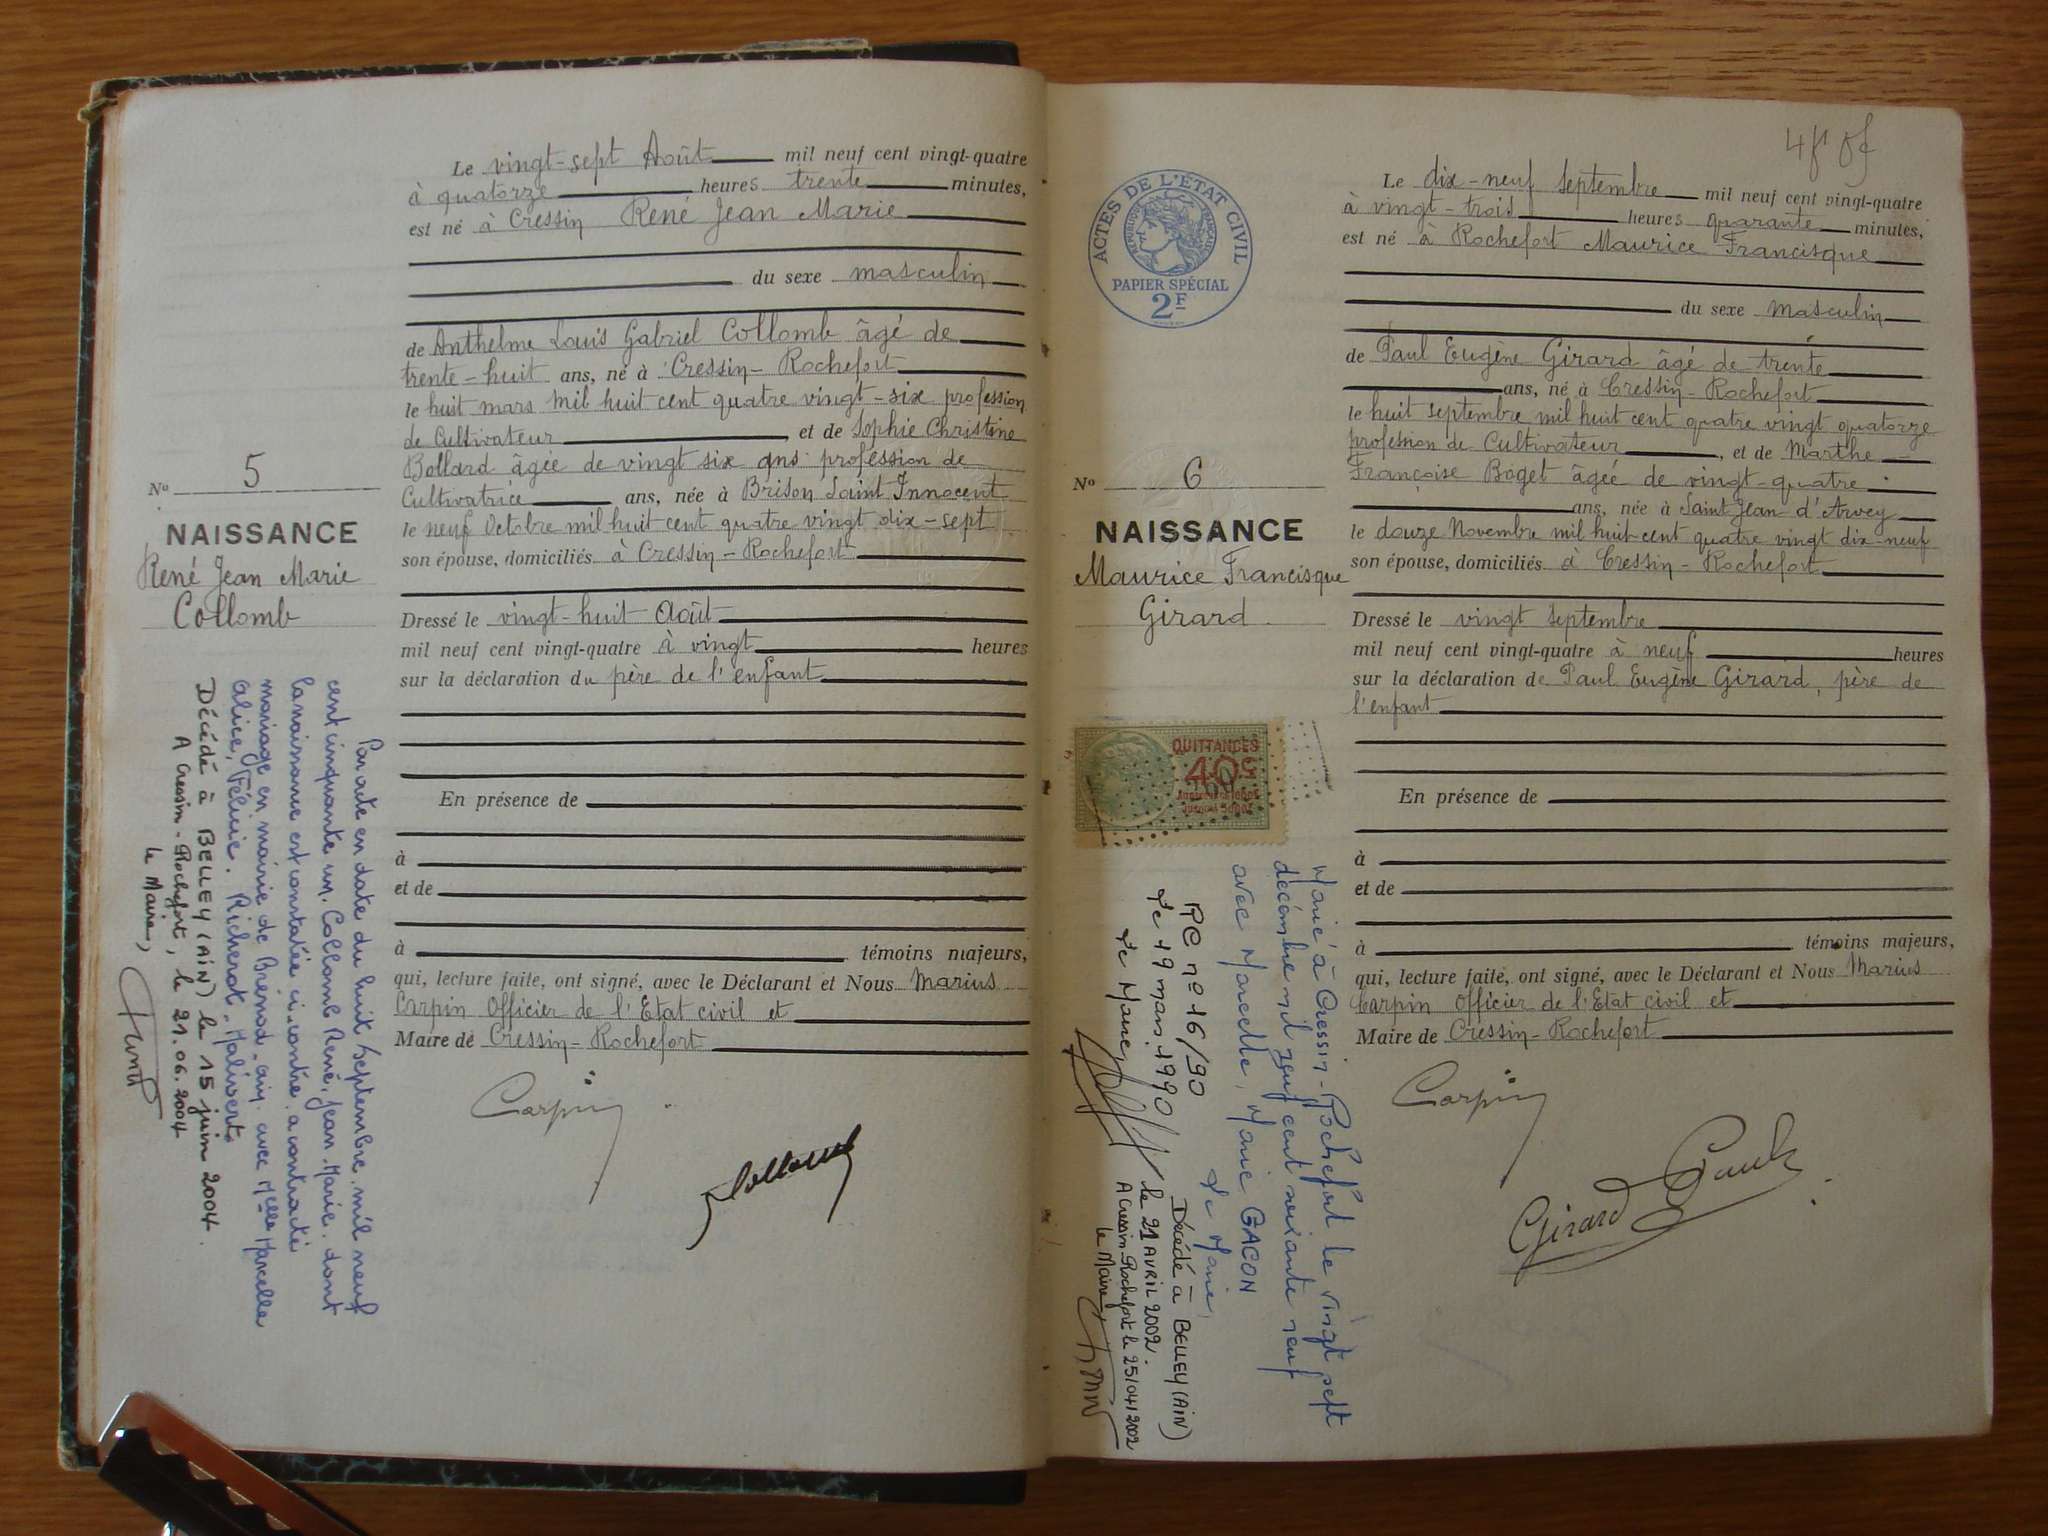 Le vingt-sept Août mil neuf cent vingt-quatre
à quatorze heures trente minutes,
est né à Cressin René Jean Marie
du sexe masculin
de Anthelme Louis Gabriel Collomb âgé de
trente-huit ans, né à Cressin-Rochefort
le huit mars mil huit cent quatre vingt-six profession
de Cultivateur, et de Sophie Christine
Bollard âgée de vingt six ans profession de
Cultivatrice ans, née à Brison Saint Innocent
le neuf Octobre mil huit cent quatre vingt dix-sept
son épouse, domiciliés à Cressin-Rochefort
Dressé le vingt-huit Août
mil neuf cent vingt-quatre à vingt heures
sur la déclaration du père de l'enfant
En présence de
à
et de
à témoins majeurs,
qui, lecture faite, ont signé, avec le Déclarant et Nous Marius
Carpin Officier de l'Etat civil et
Maire de Cressin-Rochefort
Carpin
Collomb
No 5
NAISSANCE
René Jean Marie
Collomb
Par acte en date du huit Septembre mil neuf
cent cinquante un. Collomb René, Jean, Marie. dont
la naissance est constatée ci-contre. a contracté
mariage en mairie de Brénod-Ain. avec Melle Marcelle
Alice, Félicie. Richerot-Malivert.
Décédé à BELLEY (AIN) le 15 juin 2004.
A Cressin-Rochefort, le 21.06.2004
le Maire,
4
ACTES DE L'ÉTAT CIVIL
RÉPUBLIQUE FRANÇAISE
PAPIER SPÉCIAL
2F
Le dix-neuf Septembre mil neuf cent vingt-quatre
à vingt-trois heures quarante minutes,
est né à Rochefort Maurice Francisque
du sexe masculin
de Paul Eugène Girard âgé de trente
ans, né à Cressin-Rochefort
le huit septembre mil huit cent quatre vingt quatorze
profession de Cultivateur, et de Marthe
Françoise Boget âgée de vingt-quatre
ans, née à Saint Jean d'Arvey
le douze Novembre mil huit-cent quatre vingt dix-neuf
son épouse, domiciliés à Cressin-Rochefort
Dressé le vingt Septembre
mil neuf cent vingt-quatre à neuf heures
sur la déclaration de Paul Eugène Girard, père de
l'enfant
En présence de
à
et de
à témoins majeurs,
qui, lecture faite, ont signé, avec le Déclarant et Nous Marius
Carpin Officier de l'Etat civil et
Maire de Cressin-Rochefort
Carpin
Girard Paul
No 6
NAISSANCE
Maurice Francisque
Girard
QUITTANCES
40c
Marié à Cressin-Rochefort le vingt sept
décembre mil neuf cent soixante neuf
avec Marcelle, Marie GACON
Le Maire,
RC no 16/90
Le 19 mars 1990
Le Maire,
Décédé à BELLEY (AIN)
le 21 AVRIL 2002.
A Cressin-Rochefort le 25/04/2002
le Maire,